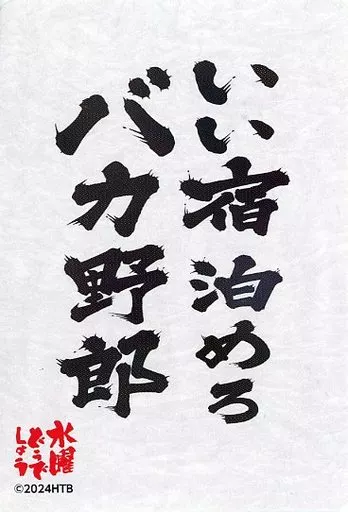 いい宿泊めろ
バカ野郎
水曜
どうで
しょう
©2024HTB